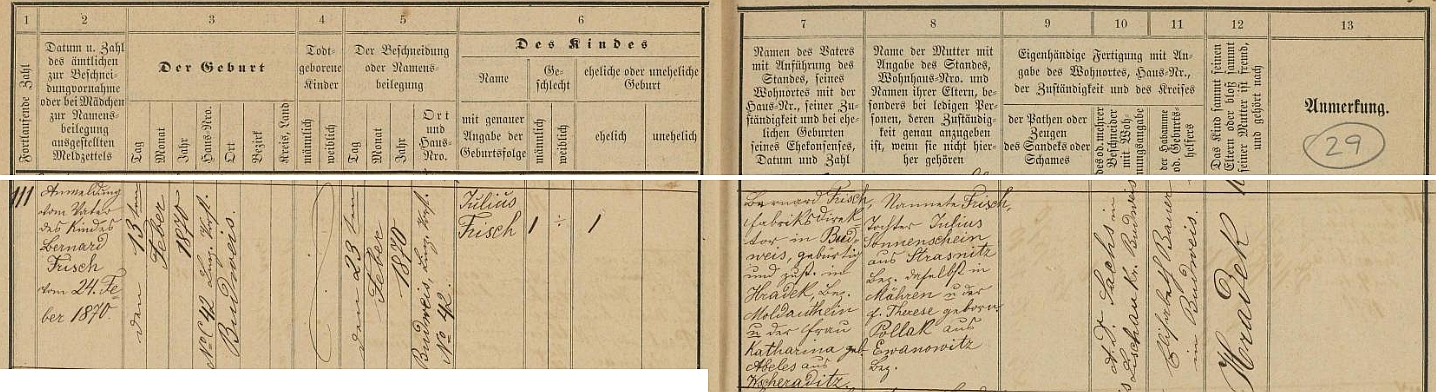 1
2
3
4
5
6
7
8
9
10
11
12
13
Fortlaufende Zahl
Datum u. Zahl
des ämtlichen
zur Beschnei-
dungvornahme
oder bei Mädchen
zur Namens-
beilegung
ausgestellten
Meldzettels
Der Geburt
Tag
Monat
Jahr
Haus-Nro.
Ort
Bezirk
Kreis, Land
Todt-
geborene
Kinder
männlich
weiblich
Der Beschneidung
oder Namens-
beilegung
Tag
Monat
Jahr
Ort
und
Haus-
Nro.
Des Kindes
Name
mit genauer
Angabe der
Geburtsfolge
Ge-
schlecht
männlich
weiblich
eheliche oder uneheliche
Geburt
ehelich
unehelich
Namen des Vaters
mit Anführung des
Standes, seines
Wohnortes mit der
Haus-Nr., seiner Zu-
ständigkeit und bei ehe-
lichen Geburten
seines Ehekonsenses,
Datum und Zahl
Name der Mutter mit
Angabe des Standes,
Wohnhaus-Nro. und
Namen ihrer Eltern, be-
sonders bei ledigen Per-
sonen, deren Zuständig-
keit genau anzugeben
ist, wenn sie nicht hier-
her gehören
Eigenhändige Fertigung mit An-
gabe des Wohnortes, Haus-Nr.,
der Zuständigkeit und des Kreises
der Pathen oder
Zeugen
des Sandeks oder
Schames
des od. mehrer
Beschneider
mit Woh-
nungsangabe
der Hebamme
od. Geburts-
helfers
Das Kind sammt seinen
Eltern oder bloß sammt
seiner Mutter ist fremd,
und gehört nach
Anmerkung.
29
111
Anmeldung
vom Vater
des Kindes
Bernard
Frisch
vom 24. Fe-
ber 1870
den 13ten
Feber
1870
No C 42 Linz. Vorst.
Budweis.
den 23ten
Feber
1870
Budweis, Linz. Vorst.
No 42.
Julius
Frisch
1
÷
1
Bernard Frisch,
Fabriksdirek-
tor in Bud-
weis, gebürtig
und zust. in
Hradek, Bez.
Moldauthein
u. der Frau
Katharina geb.
Abeles aus
Kscheraditz.
Nannete Frisch,
Tochter Julius
Sonnenschein
aus Strasnitz
Bez. daselbst in
Mähren u. der
f. Therese geborn.
Pollak aus
Ewanowitz
Bez.
AD. Sachs in
Lischau Kr. Budweis
Elisabeth Bauer
in Budweis.
Hradek